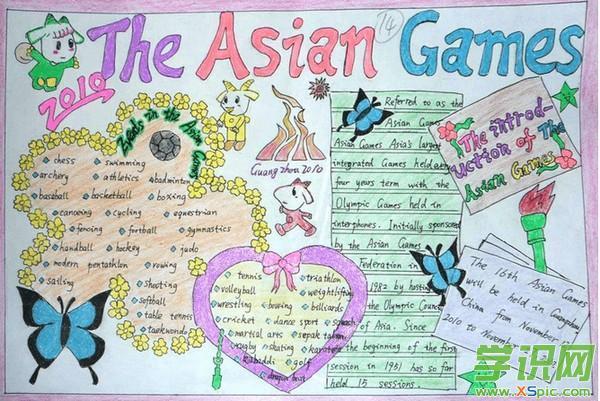 The Asian Games
14
2010
in the Asian Games
Guang zhou 2010
chess
swimming
archery
athletics
badminton
baseball
basketball
boxing
canoeing
cycling
equestrian
fencing
football
gymnastics
handball
hockey
judo
modern pentathlon
rowing
sailing
shooting
softball
table tennis
taekwondo
tennis
triathlon
volleyball
weightlifting
wrestling
bowing
billiards
cricket
dance sport
squash
martial arts
sepak takraw
rugby
skating
karate
kabaddi
golf
dragon boat
Referred to as the
Asian Games
Asian Games Asia's largest
integrated Games held every
four years term with the
Olympic Games held in
interphones. Initially sponsored
by the Asian Games
Federation in
1982 by hosting
the Olympic Council
of Asia. Since
the beginning of the first
session in 1951 has so far
held 15 sessions.
The introd-
uction of The
Asian Games
The 16th Asian Games
will be held in Guangzhou
China from November
2010 to November
学识网
www.XSpic.com